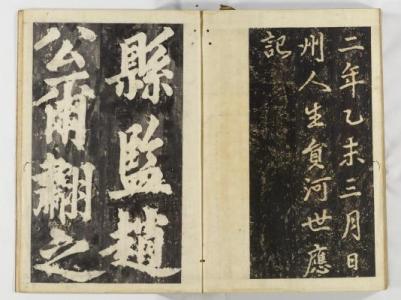 二年乙未三月日
州人生員河世應
記
縣監趙
公爾之